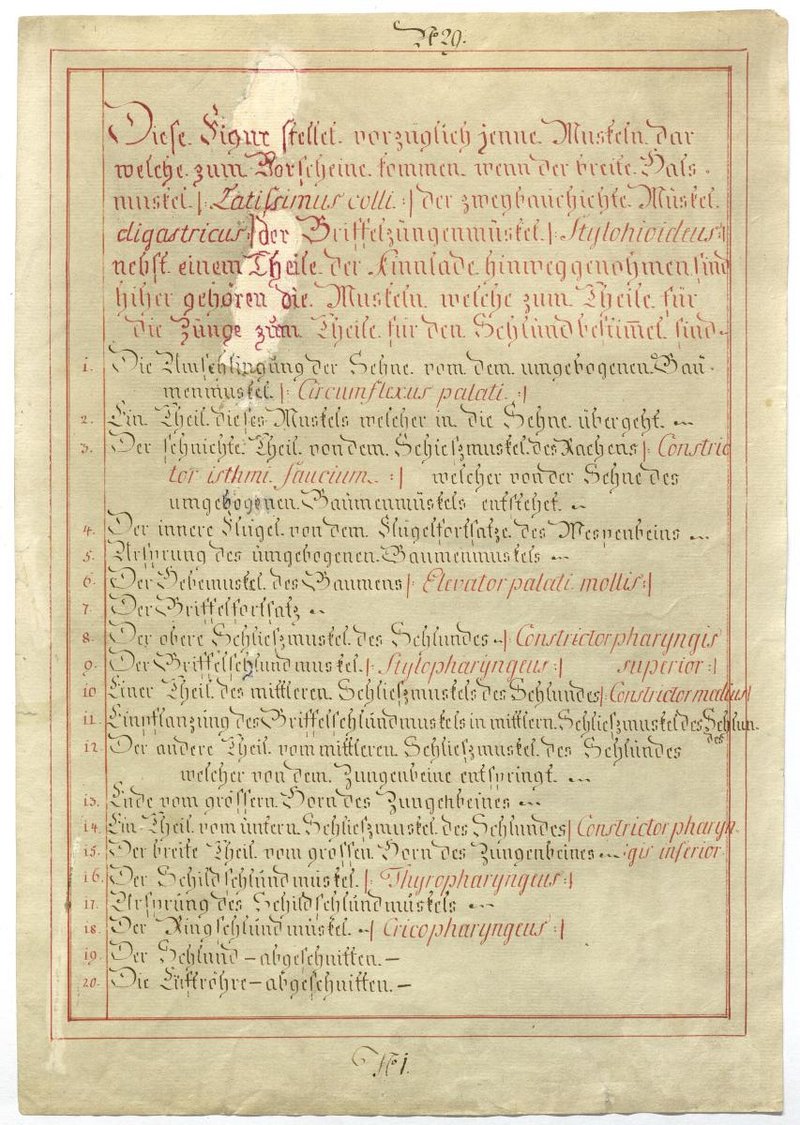 No 29.
Diese Figur stellet vorzüglich jenne Muskeln dar
welche zum Vorscheine kommen wenn der breite Hals-
muskel |: Latissimus colli :| der zweybauchichte Muskel
digastricus :| der Griffelzüngenmüskel |: Stylohioideus :|
nebst einem Theile der Kinnlade hinweggenohmen sind
hiher gehören die Muskeln welche zum Theile für
die Zünge zum Theile für den Schlund bestim̄et sind.
1. Die Umschlingung der Sehne vom dem umgebogenen Gau-
menmuskel |: Circumflexus palati :|
2. Ein Theil dieses Muskels welcher in die Sehne übergeht.
3. Der schnichte Theil von dem Schieszmuskel des Rachens |: Constric
tor isthmi faucium :| welcher von der Sehne des
umgebogenen Gaumenmüskels entstehet.
4. Der innere Flügel von dem Flügelfortsatze des Wespenbeins
5. Ursprung des umgebogenen Gaumenmuskels
6. Der Hebemuskel des Gaumens |: Elevator palati mollis :|
7. Der Griffelfortsatz
8. Der obere Schlieszmuskel des Schlundes |: Constrictor pharyngis
9. Der Griffelschlundmuskel |: Stylopharyngeus :| superior :|
10 Einer Theil des mittleren Schlieszmuskels des Schlundes |: Constrictor medius |
11. Einpflanzung des Griffelschlundmuskels in mittlern Schlieszmuskel des Schlun-
des
12. Der andere Theil vom mittleren Schlieszmuskel des Schlundes
welcher von dem Zungenbeine entspringt.
13. Ende vom grössern Horn des Zungenbeines
14. Ein Theil vom untern Schlieszmuskel des Schlundes | Constrictor pharyn-
15. Der breite Theil vom grossen Horn des Züngenbeines gis inferior
16. Der Schildschlundmüskel |: Thyropharyngeus :|
17. Ursprüng des Schildschlundmüskels
18. Der Ringschlundmüskel |: Cricopharyngeus :|
19. Der Schlund – abgeschnitten. –
20. Die Lüftröhre – abgeschnitten. –
No 1.